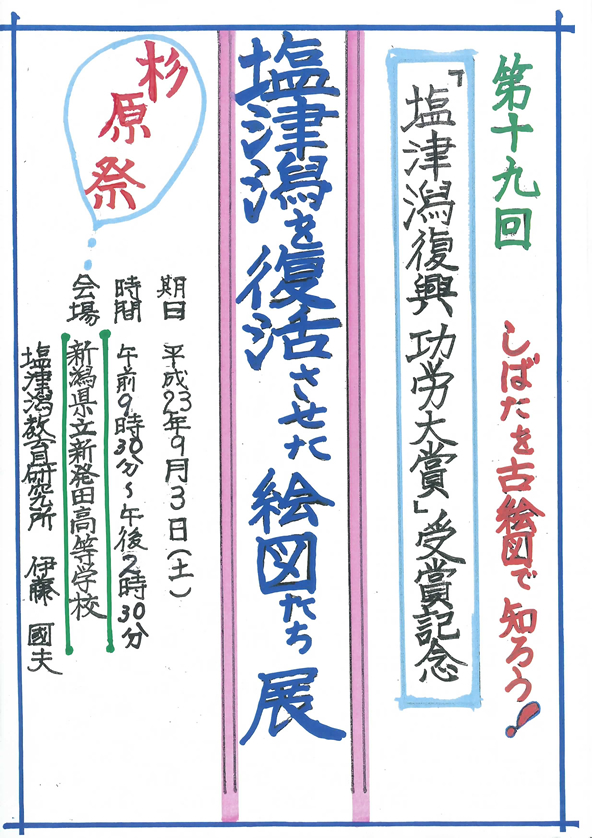 第十九回 しばたを古絵図で知ろう!
「塩津潟復興功労大賞」受賞記念
塩津潟を復活させた絵図たち展
杉原祭
期日 平成23年9月3日(土)
時間 午前9時30分~午後2時30分
会場 新潟県立新発田高等学校
塩津潟教育研究所 伊藤國夫